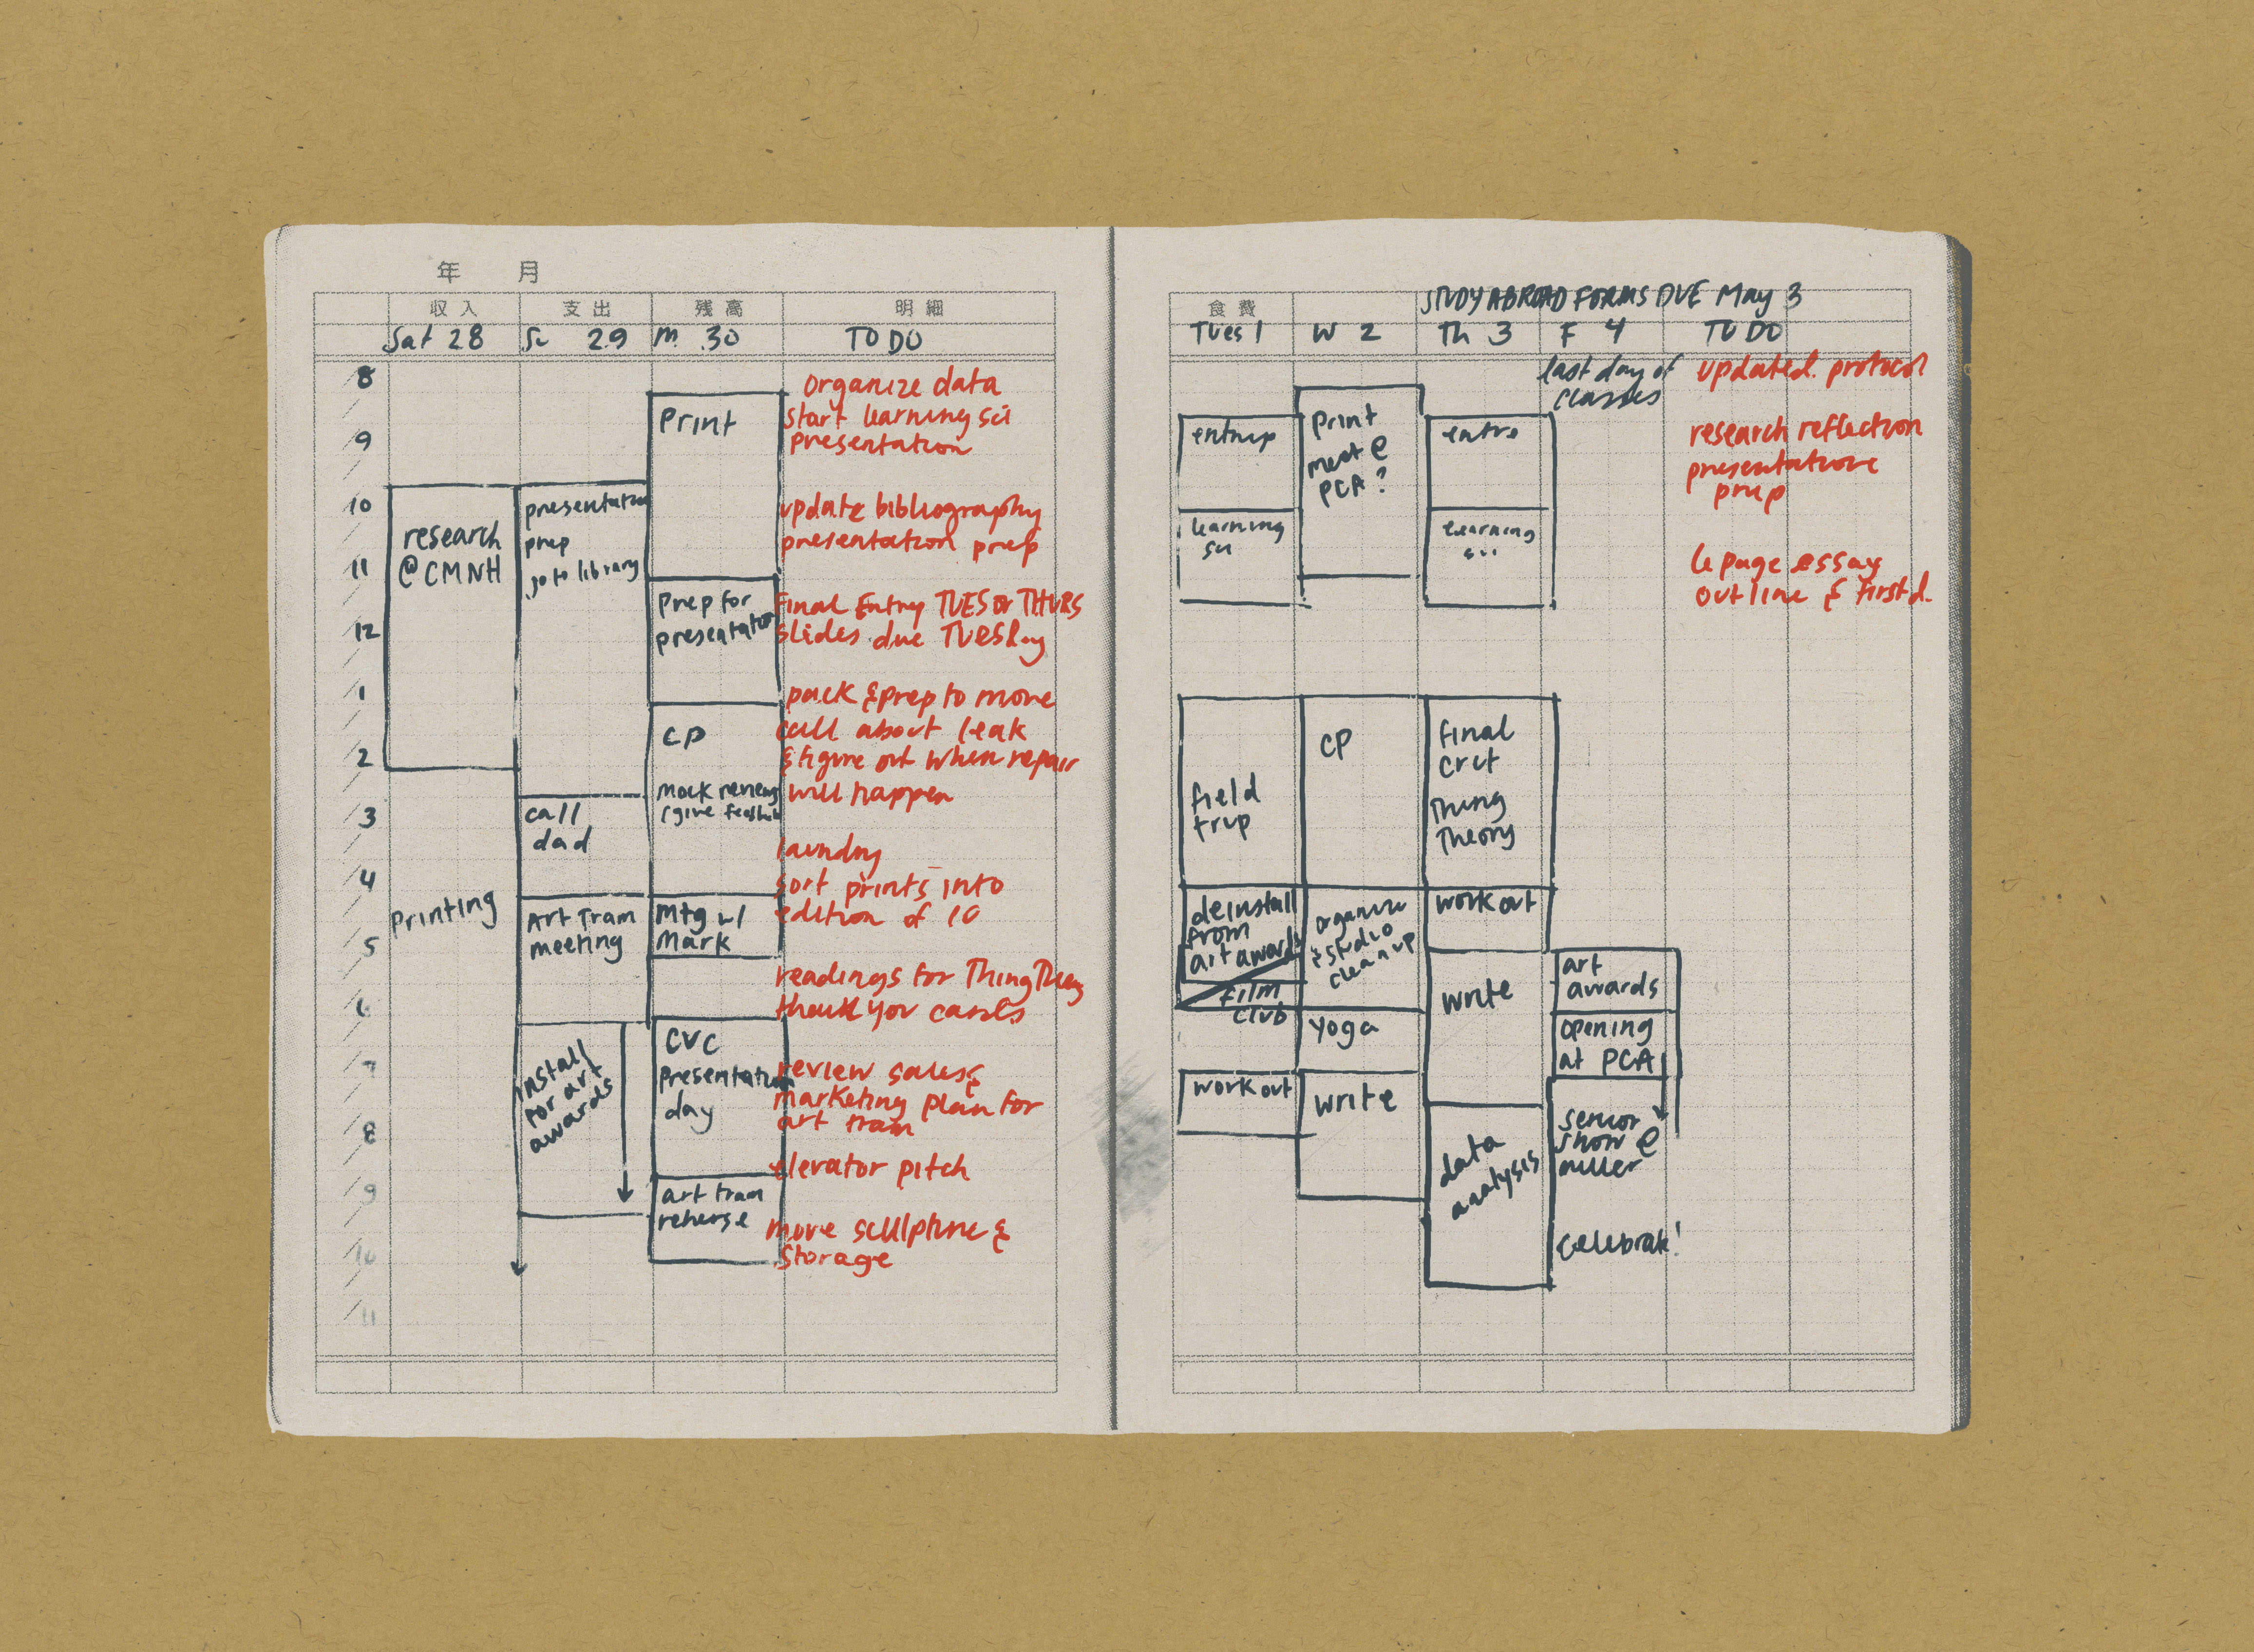 年 月
収入 支出 残高 明細
Sat 28 Su 29 M. 30 TO DO
8
9
10
11
12
1
2
3
4
5
6
7
8
9
10
11
research
@CMNH
Printing
presentation
prep
go to library
call
dad
Art Tram
meeting
install
for art
awards
Print
Prep for
presentation
CP
mock reviews
Mtg w/
Mark
CVC
Presentation
day
art tram
reherse
organize data
start learning sci
presentation
update bibliography
presentation prep
final Entry TUES or THURS
slides due TUESday
pack & prep to move
call about leak
& figure out when repair
will happen
laundry
sort prints into
edition of 10
readings for Thing Theory
thank you cards
review sales &
marketing plan for
art tram
elevator pitch
move sculpture &
storage
STUDY ABROAD FORMS DUE May 3
食費
Tues 1 W 2 Th 3 F 4 TO DO
entrep
learning
sci
field
trip
deinstall
from
art awards
film
club
work out
print
meet @
PCA?
CP
organize
& studio
clean up
yoga
write
entre
learning
sci
final
crit
Thing
Theory
work out
write
data
analysis
last day of
classes
art
awards
opening
at PCA
senior
show @
miller
celebrate!
updated protocol
research reflection
presentation
prep
6 page essay
outline & first d.